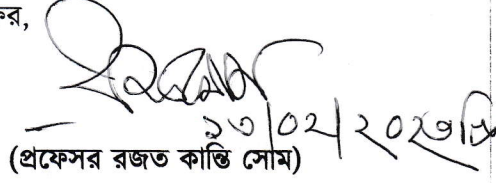 কর,
১৩/০২/২০২৩ খ্রি
(প্রফেসর রজত কান্তি সোম)